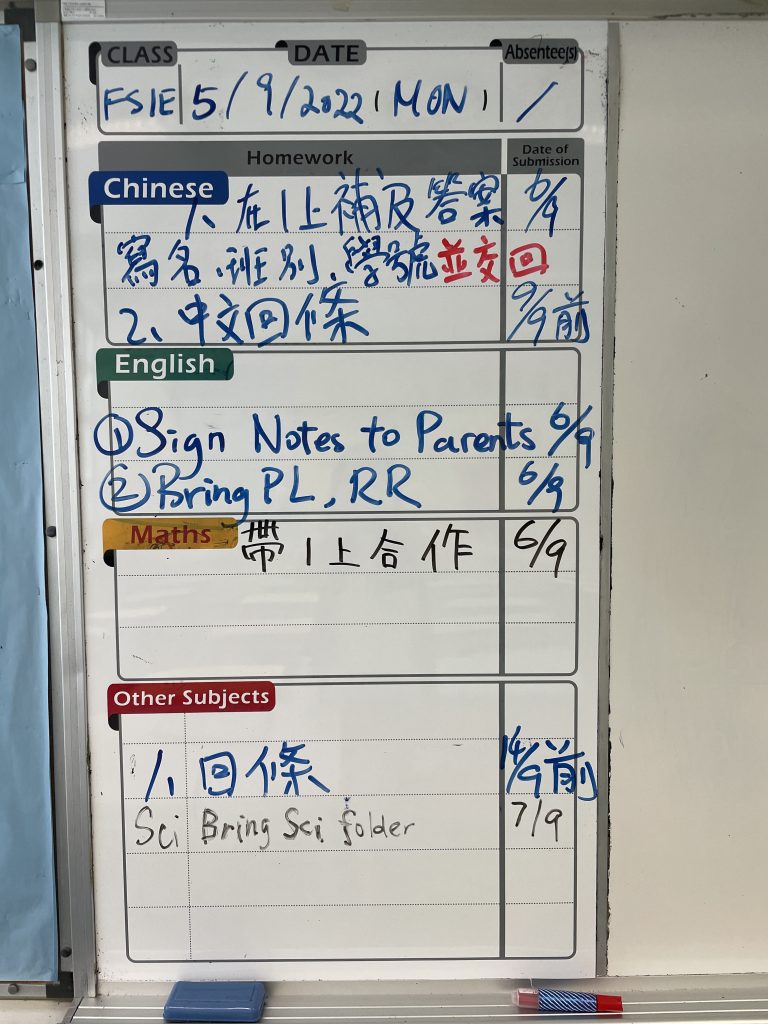 CLASS DATE Absentee(s)
FS1E 5/9/2022 (MON) /
Homework Date of Submission
Chinese
1、在1上補及答案 6/9
寫名、班別、學號並交回
2、中文回條 9/9前
English
①Sign Notes to Parents 6/9
②Bring PL, RR 6/9
Maths 帶1上合作 6/9
Other Subjects
1、回條 14/9前
Sci Bring Sci folder 7/9